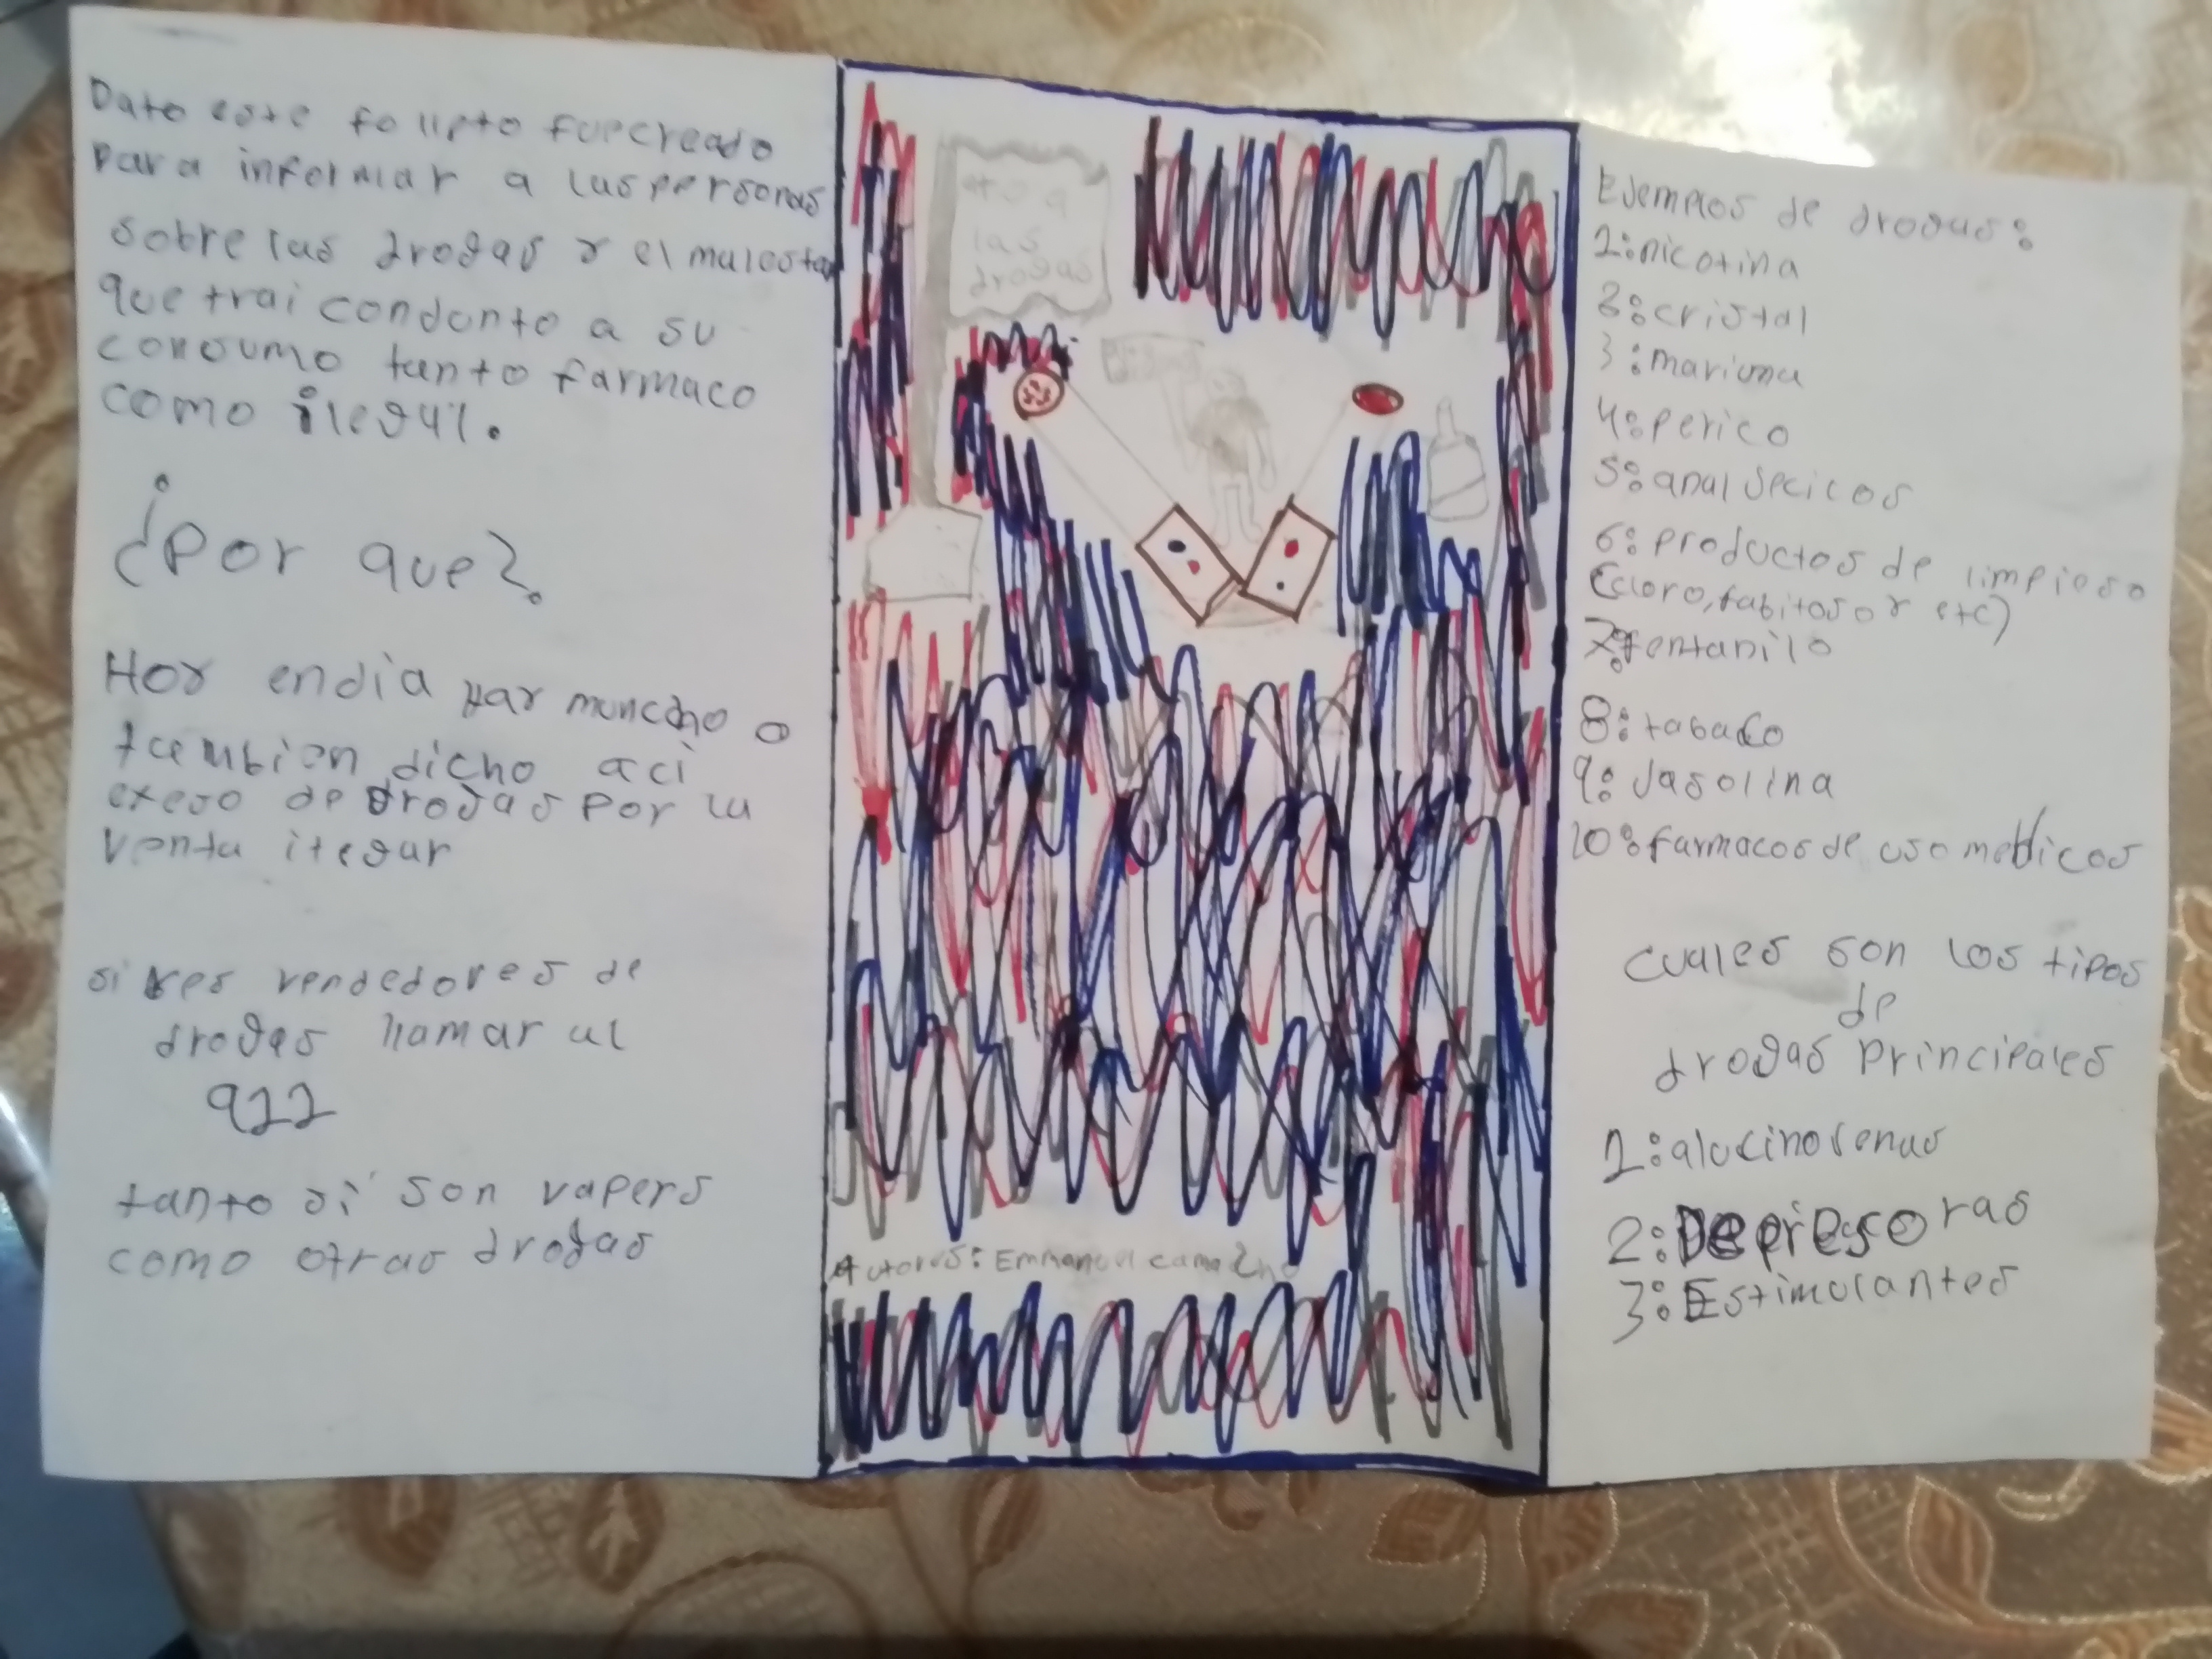 Dato este folleto fuecreado
para informar a las personas
sobre las drogas y el malestar
que trai condunto a su
consumo tanto farmaco
como ilegal.
¿Por que?
Hoy endia hay muncho o
tambien dicho aci
exeso de drogas por la
venta ilegar
si ves vendedores de
drogas llamar al
911
tanto si son vapers
como otras drogas
las
drogas
Autores: Emmanuel camacho
Ejemplos de drogas:
1:nicotina
2:cristal
3:mariuna
4:perico
5:analgecicos
6:productos de limpieso
(cloro,fabitoso y etc)
7:fentanilo
8:tabaco
9:gasolina
10:farmacos de uso medicos
cuales son los tipos
de
drogas principales
1:alucinogenas
2:Depresoras
3:Estimulantes